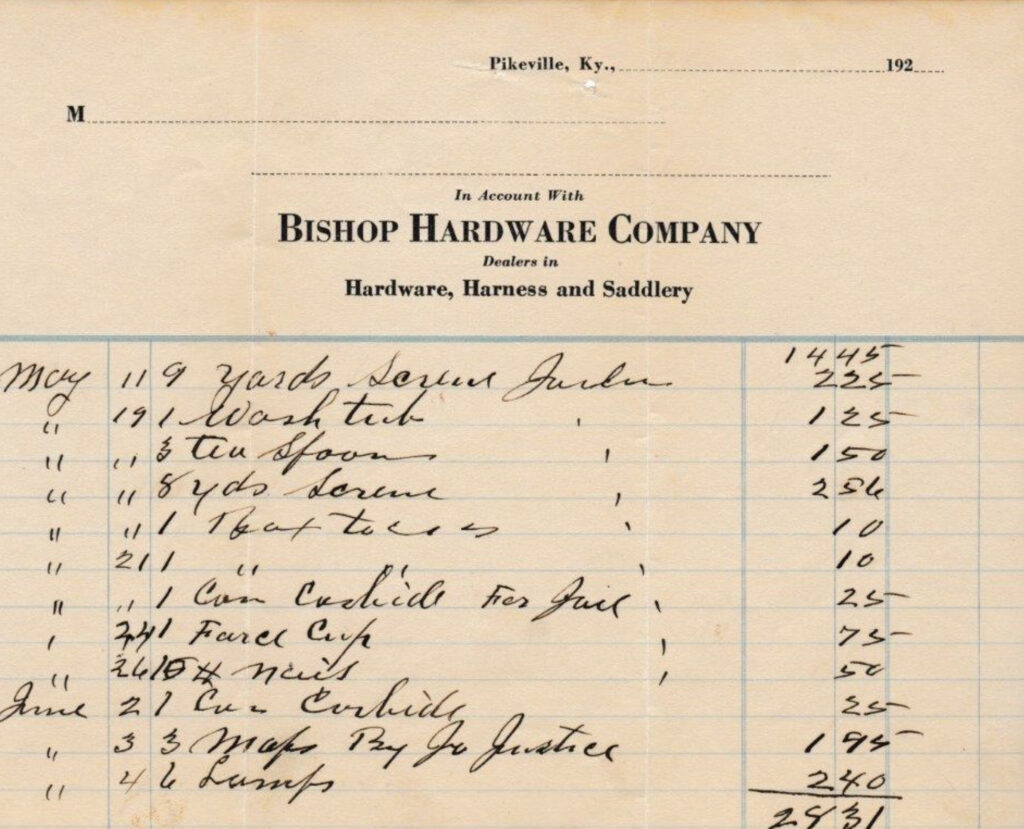 Pikeville, Ky., 192
M
In Account With
BISHOP HARDWARE COMPANY
Dealers in
Hardware, Harness and Saddlery
1445
May 11 9 Yards Screne 225
" 19 1 Wash tub 125
" " 3 tea Spoons 150
" " 8 yds Screne 256
" " 1 Box 10
" 21 1 " " 10
" " 1 Can Carbide For Jail 25
" 24 1 Force Cup 75
" 26 # nails 50
June 2 1 Can Carbide 25
" 3 3 Mops By Jo Justice 195
" 4 6 Lamps 240
2831